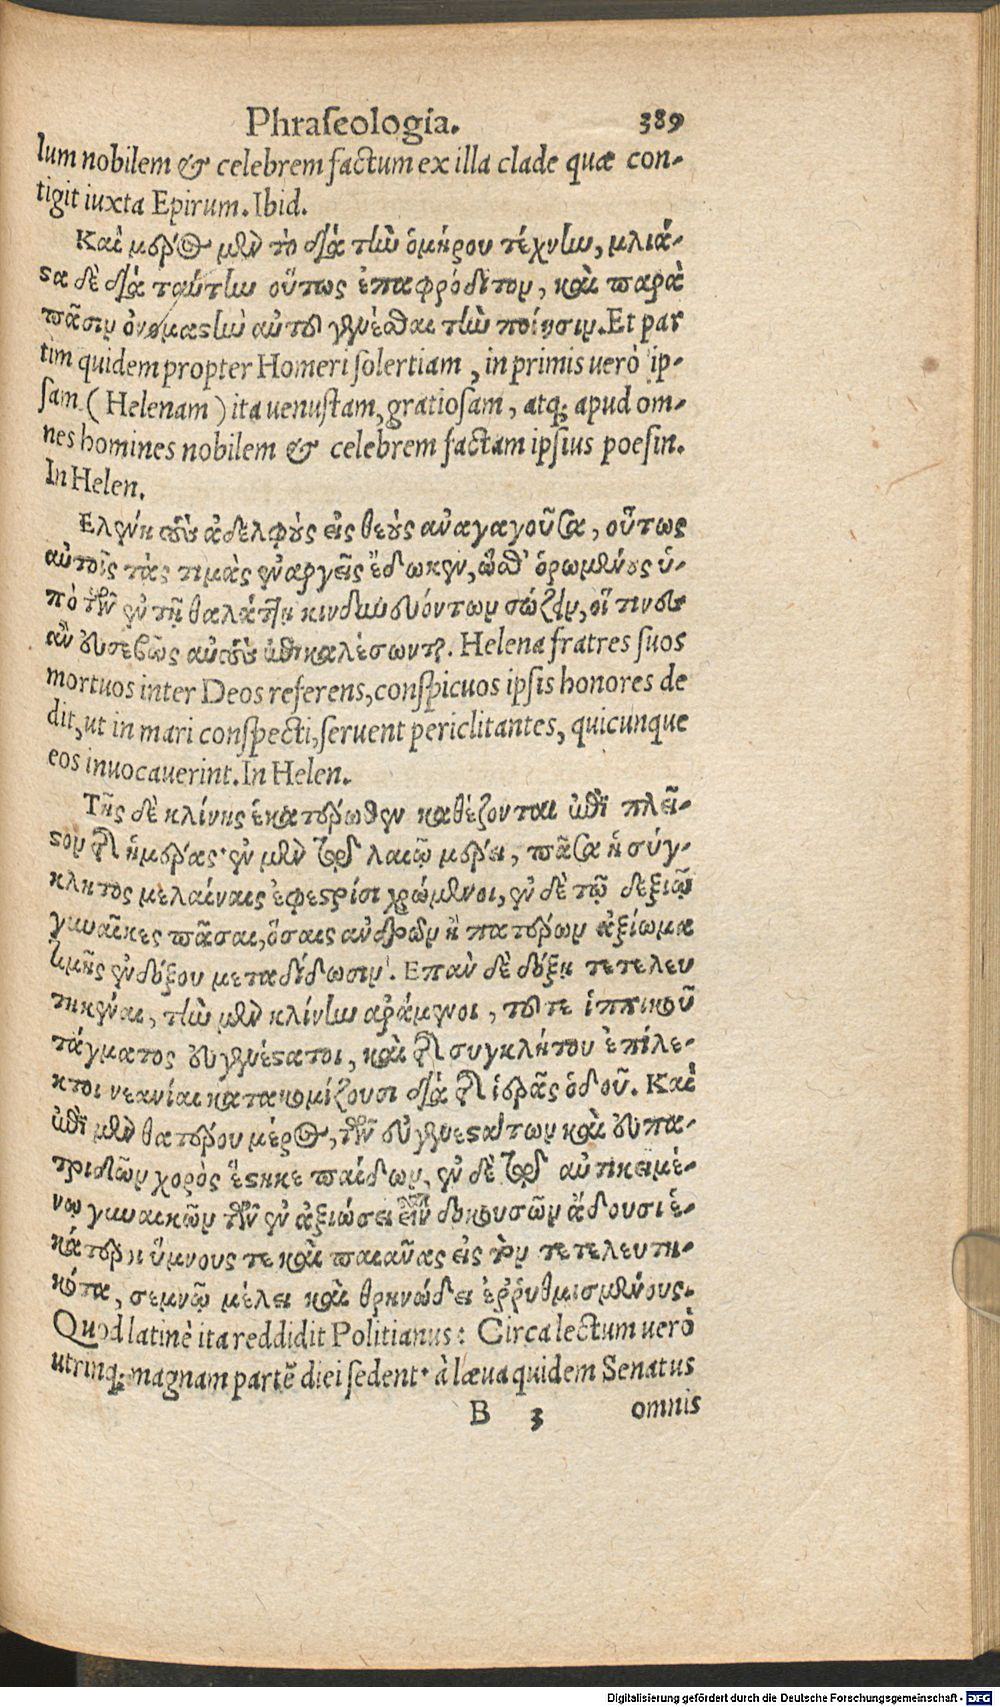 Phraſeologia. 389
lum nobilem & celebrem factum ex illa clade quæ con-
tigit iuxta Epirum. Ibid.
Καὶ μέρος μὲν τὸ διὰ τὴν ὁμήρου τέχνην, μάλιϛα
δὲ διὰ ταύτην οὕτως ἐπαφρόδιτον, καὶ παρὰ
πᾶσιν ὀνομαϛὴν αὐτοῦ γενέσθαι τὴν ποίησιν. Et par
tim quidem propter Homeri ſolertiam, in primis uerò ip-
ſam (Helenam) ita uenuſtam, gratioſam, atq; apud om-
nes homines nobilem & celebrem factam ipſius poeſin.
In Helen.
Ελένη τοὺς ἀδελφοὺς εἰς θεοὺς ἀναγαγοῦσα, οὕτως
αὐτοῖς τὰς τιμὰς ἐναργεῖς ἔδωκεν, ὥσθ' ὁρωμένους ὑ-
πὸ τῶν ἐν τῇ θαλάττῃ κινδυνευόντων σώζειν, οἵ τινες
ἂν εὐσεβῶς αὐτοὺς ἐπικαλέσωνται. Helena fratres ſuos
mortuos inter Deos referens, conſpicuos ipſis honores de
dit, ut in mari conſpecti, ſeruent periclitantes, quicunque
eos inuocauerint. In Helen.
Τῆς δὲ κλίνης ἑκατέρωθεν καθέζονται ἐπὶ πλεῖ-
ϛον τῆς ἡμέρας· ἐν μὲν τῷ λαιῷ μέρει, πᾶσα ἡ σύγ-
κλητος μελαίναις ἐφεϛρίσι χρώμενοι, ἐν δὲ τῷ δεξιῷ
γυναῖκες πᾶσαι, ὅσαις ἀνδρῶν ἢ πατέρων ἀξίωμα
τιμῆς ἐνδόξου μεταδίδωσιν. Επὰν δὲ δόξῃ τετελευ
τηκέναι, τὴν μὲν κλίνην ἀράμενοι, τοῦ τε ἱππικοῦ
τάγματος εὐγενέϛατοι, καὶ τῆς συγκλήτου ἐπίλε-
κτοι νεανίαι κατακομίζουσι διὰ τῆς ἱερᾶς ὁδοῦ. Καὶ
ἐπὶ μὲν θατέρου μέρος, τῶν εὐγενεϛάτων καὶ εὐπα-
τριδῶν χορὸς ἕϛηκε παίδων, ἐν δὲ τῷ αὐτικειμέ-
νῳ γυναικῶν τῶν ἐν ἀξιώσει εἶναι δοκουσῶν ᾄδουσι ἑ-
κάτεροι ὕμνους τε καὶ παιᾶνας εἰς τὸν τετελευτη-
κότα, σεμνῷ μέλει καὶ θρηνώδει ἐῤῥυθμισμένους.
Quod latinè ita reddidit Politianus: Circa lectum uerò
utrinq; magnam partẽ diei ſedent· à læua quidem Senatus
B 3 omnis
Digitalisierung gefördert durch die Deutsche Forschungsgemeinschaft - DFG